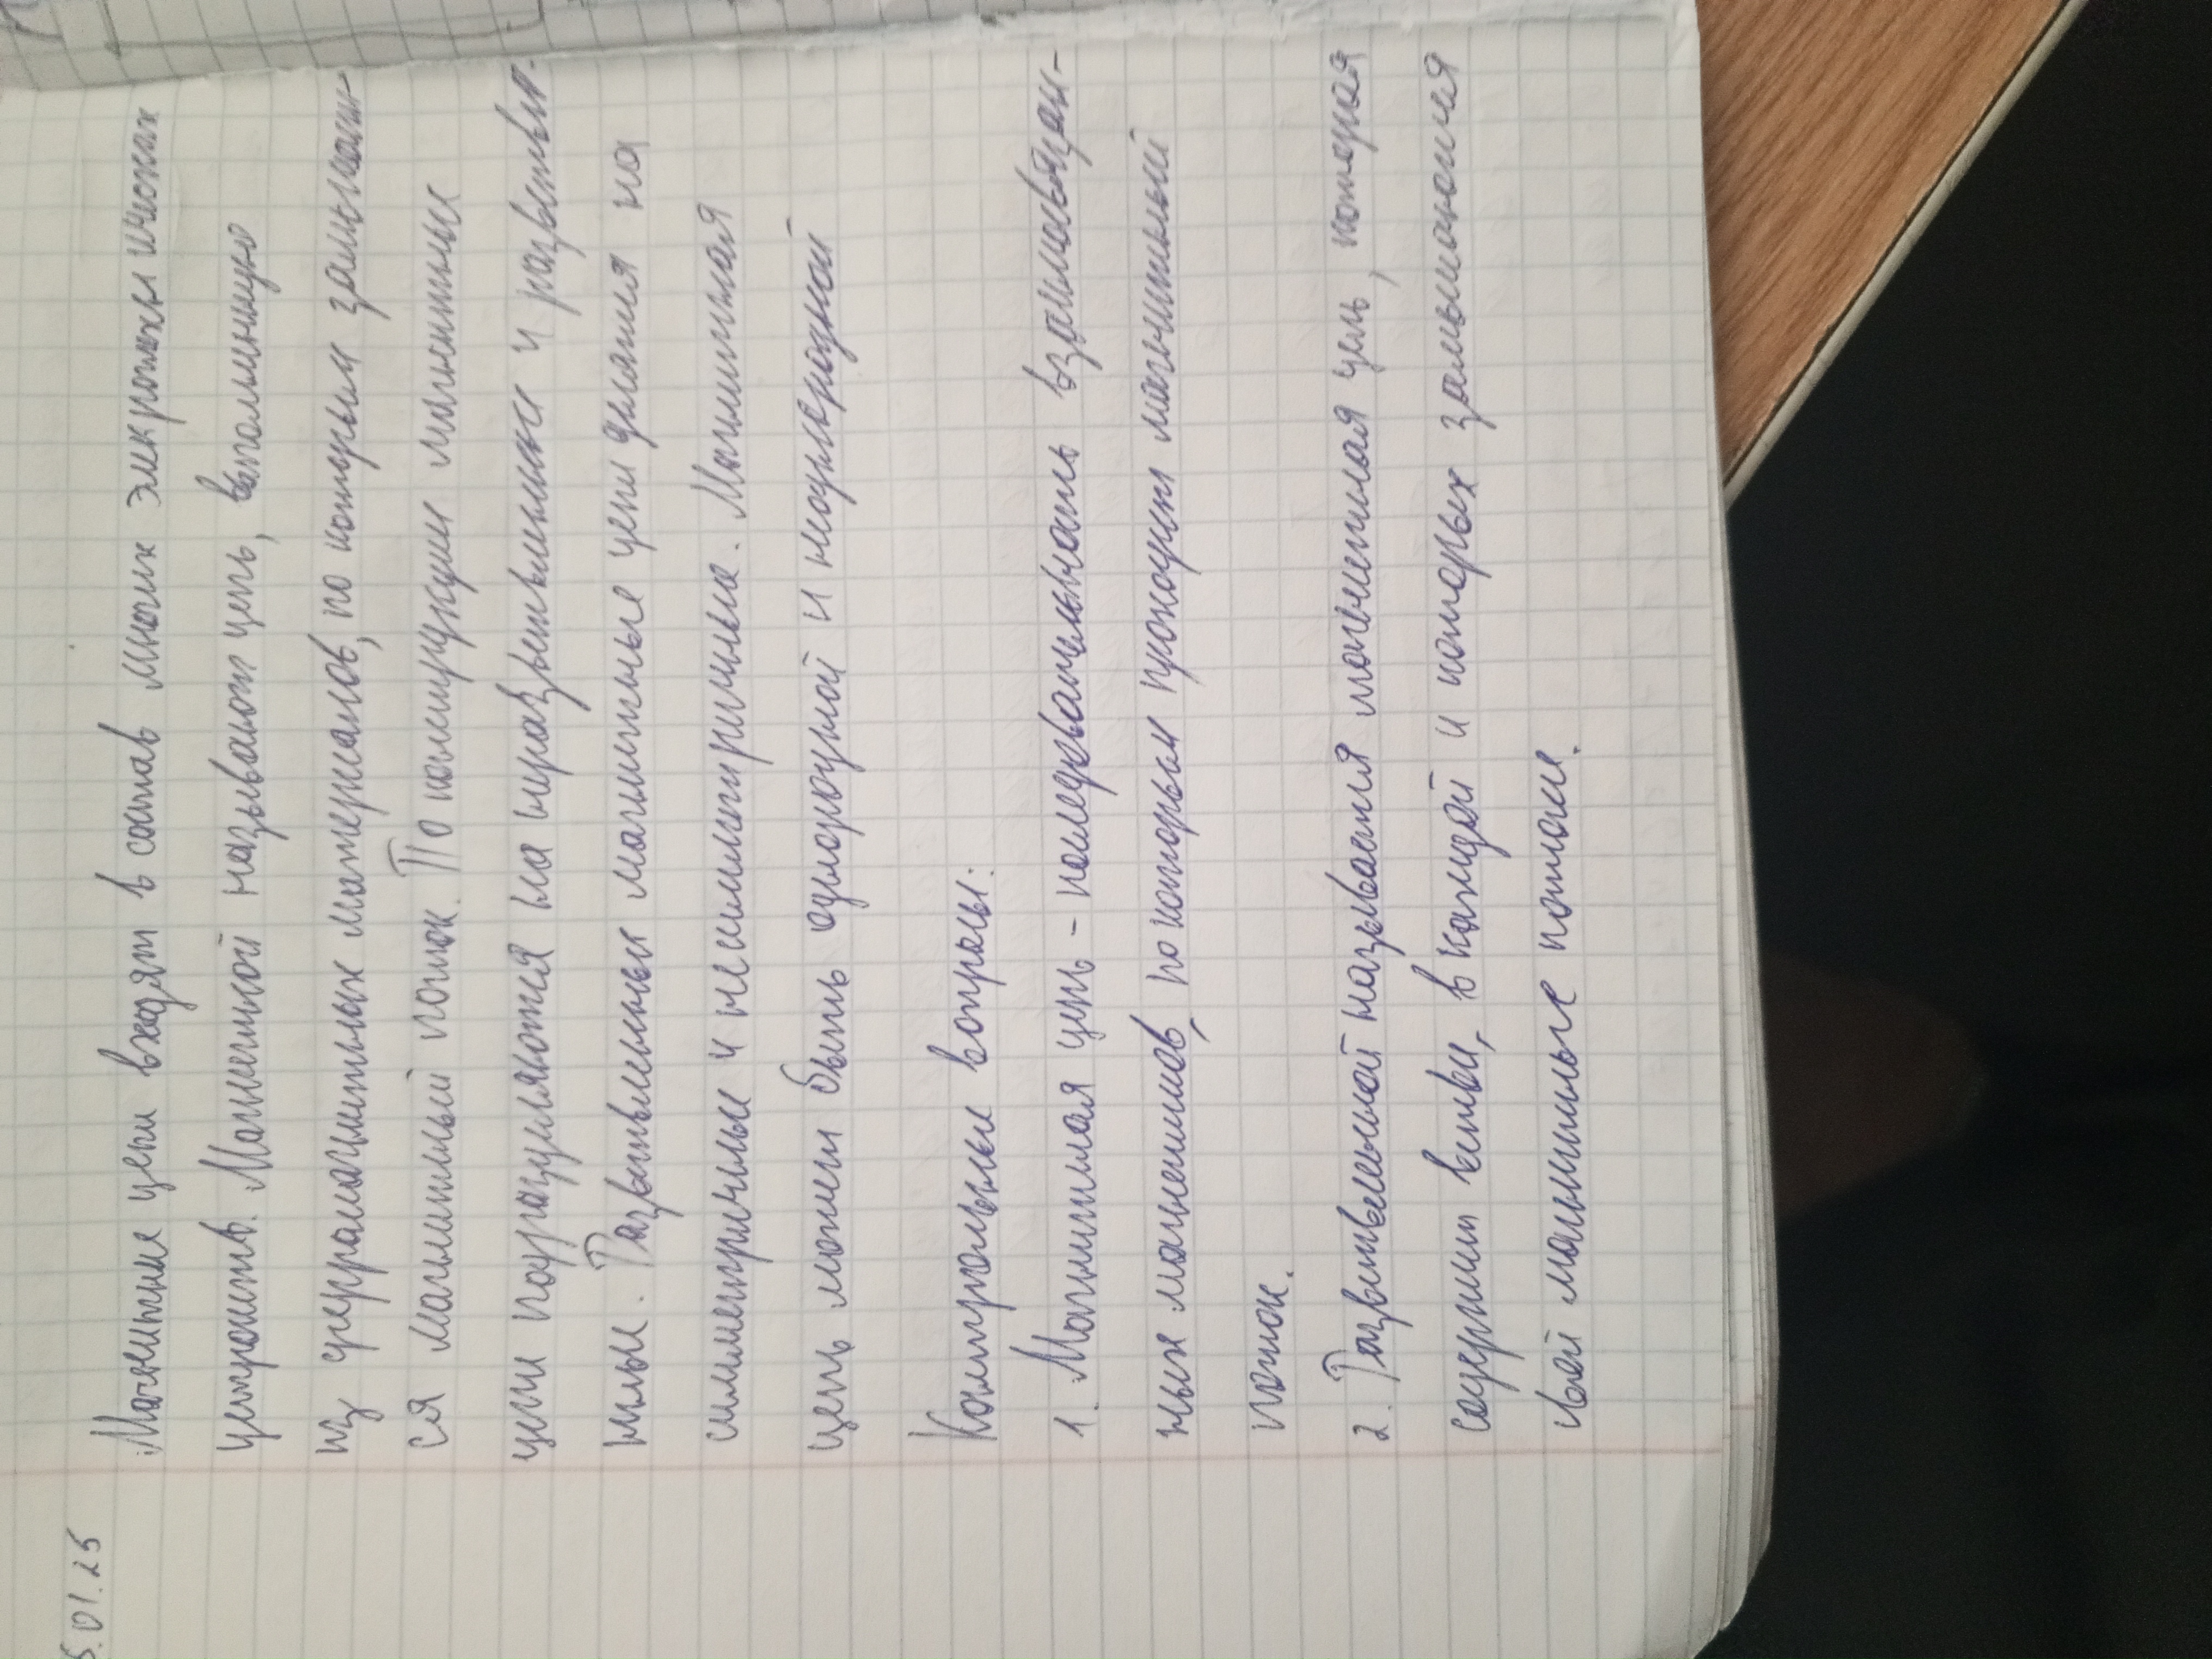 5.01.25
Магнитные цепи входят в состав многих электротехнических
устройств. Магнитной называют цепь, выполненную
из ферромагнитных материалов, по которым замыкает-
ся магнитный поток. По конструкции магнитные
цепи подразделяются на неразветвленные и разветвл-
нные. Разветвленные магнитные цепи деляться на
симметричные и несимметричные. Магнитная
цепь может быть однородной и неоднородной
Контрольные вопросы:
1. Магнитная цепь - последовательность взаимосвязан-
ных магнетиков, по которым проходит магнитный
поток.
2. Разветвленной называется магнитная цепь, которая
содержит ветви, в каждой и которых замыкаются
свой магнитные потоки.